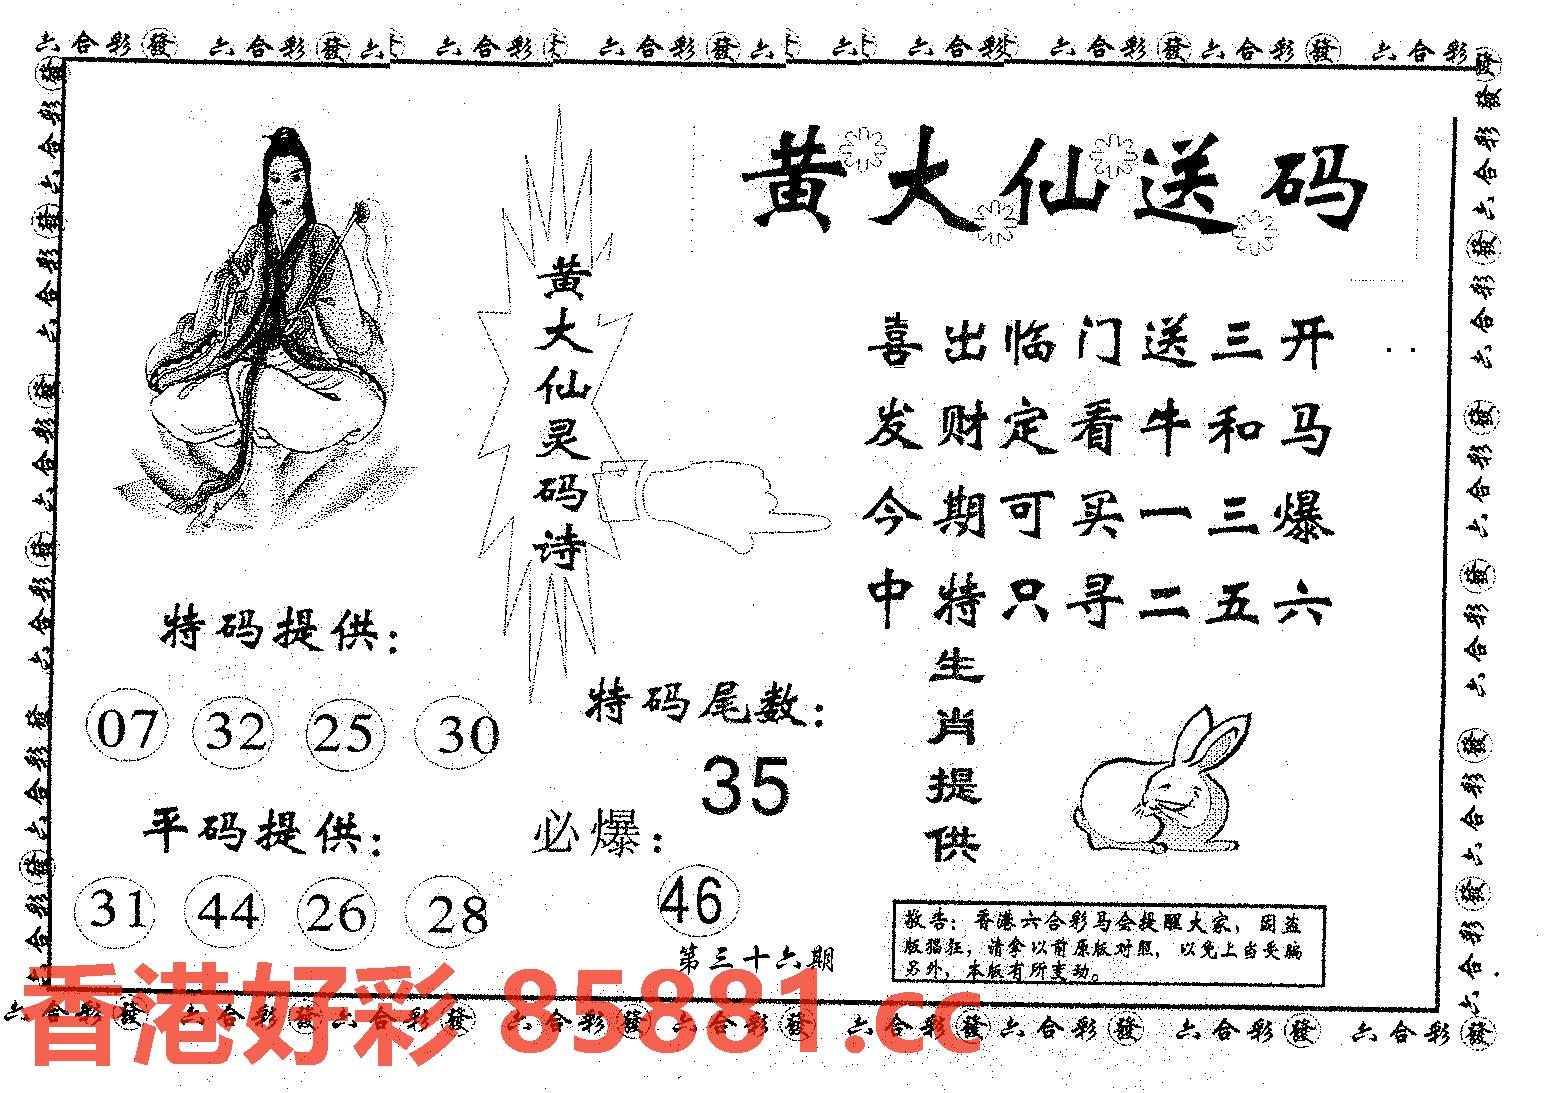 六合彩發 六合彩發 六 六合彩 六合彩發 六 六 六合彩 六合彩發 六合彩發 六合彩發
黄大仙送码
黄大仙灵码诗
喜出临门送三开
发财定看牛和马
今期可买一三爆
中特只寻二五六
特码提供：
07 32 25 30
平码提供：
31 44 26 28
特码尾数：
35
必爆：
46
第三十六期
生肖提供
敬告：香港六合彩马会提醒大家，因盗
版猖狂，请拿以前原版对照，以免上当受骗
另外，本版有所变动。
香港好彩 85881.cc
六合彩發 六合彩發 六合彩發 六合彩發 六合彩發 六合彩發 六合彩發 六合彩發 六合彩發